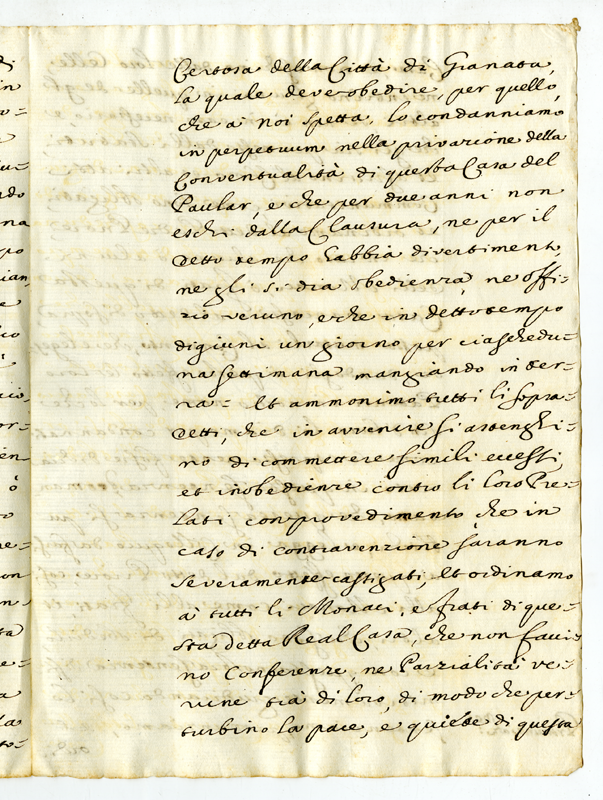 Certosa della Città di Granata,
la quale deve obedire, per quello,
che à Noi spetta, lo condanniamo
in perpetuum nella privazione della
Conventualità di questa Casa del
Paular, e che per due anni non
eschi dalla Clausura, ne per il
detto tempo habbia divertimenti,
ne gli si dia obedienza, ne offi=
zio veruno, e che in detto tempo
digiuni un giorno per ciaschedu=
na settimana mangiando in ter=
ra= Et ammonimo tutti li sopra=
detti, che in avvenire si astenghi=
no di commettere simili eccessi,
et inobedienze contro li loro Pre=
lati con provedimento che in
caso di contravenzione saranno
severamente castigati, Et ordinamo
à tutti li Monaci, e frati di que=
sta detta Real Casa, che non facci=
no Conferenze, ne Parzialità ve=
rune trà di loro, di modo che per=
turbino la pace, e quiete di questa